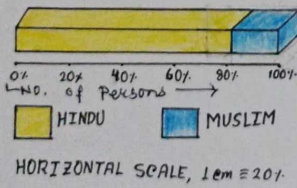 0% 20% 40% 60% 80% 100%
No. of Persons
HINDU MUSLIM
HORIZONTAL SCALE, 1cm ≡ 20%